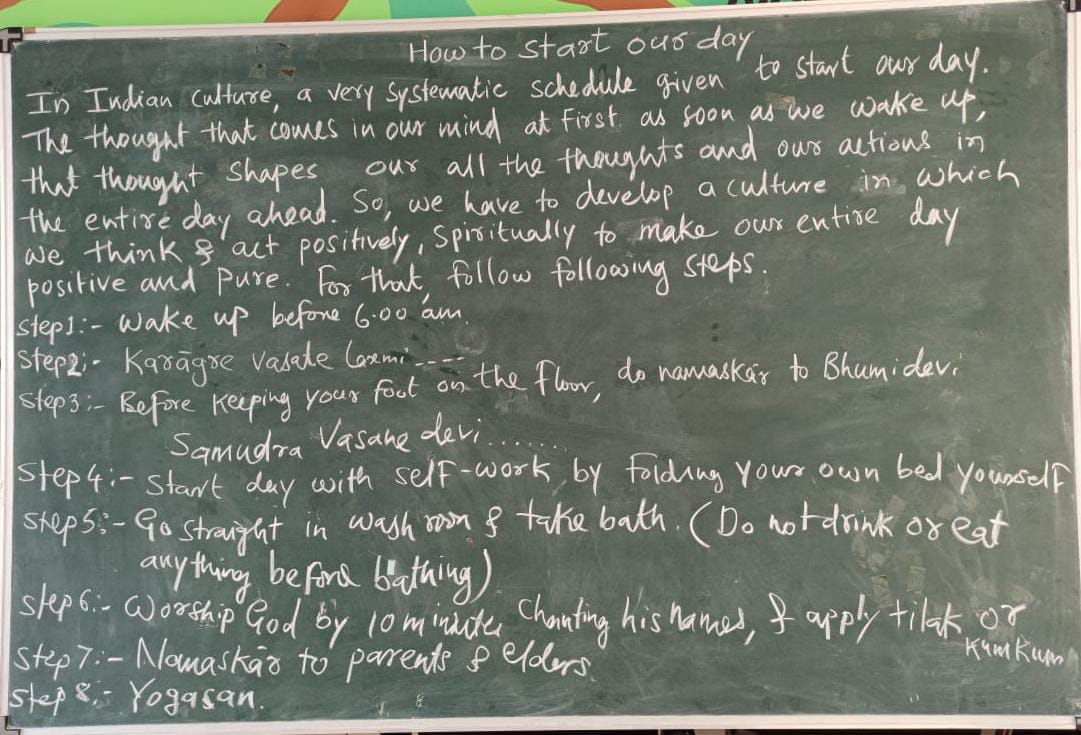 How to start our day
In Indian Culture, a very systematic schedule given to start our day.
The thought that comes in our mind at first as soon as we wake up,
that thought shapes our all the thoughts and our actions in
the entire day ahead. So, we have to develop a culture in which
we think & act positively, Spiritually to make our entire day
positive and pure. For that, follow following steps.
Step1:- Wake up before 6.00 am.
Step2:- Karāgre vasate laxmi----
Step3:- Before keeping your foot on the floor, do namaskār to Bhumidevi
Samudra Vasane devi......
Step4:- Start day with self-work by folding your own bed yourself
Step5:- Go straight in wash room & take bath. (Do not drink or eat
anything before bathing)
Step6:- Worship God by 10 minutes Chanting his names, & apply tilak or
KumKum
Step7:- Namaskār to parents & elders.
Step8:- Yogasan.